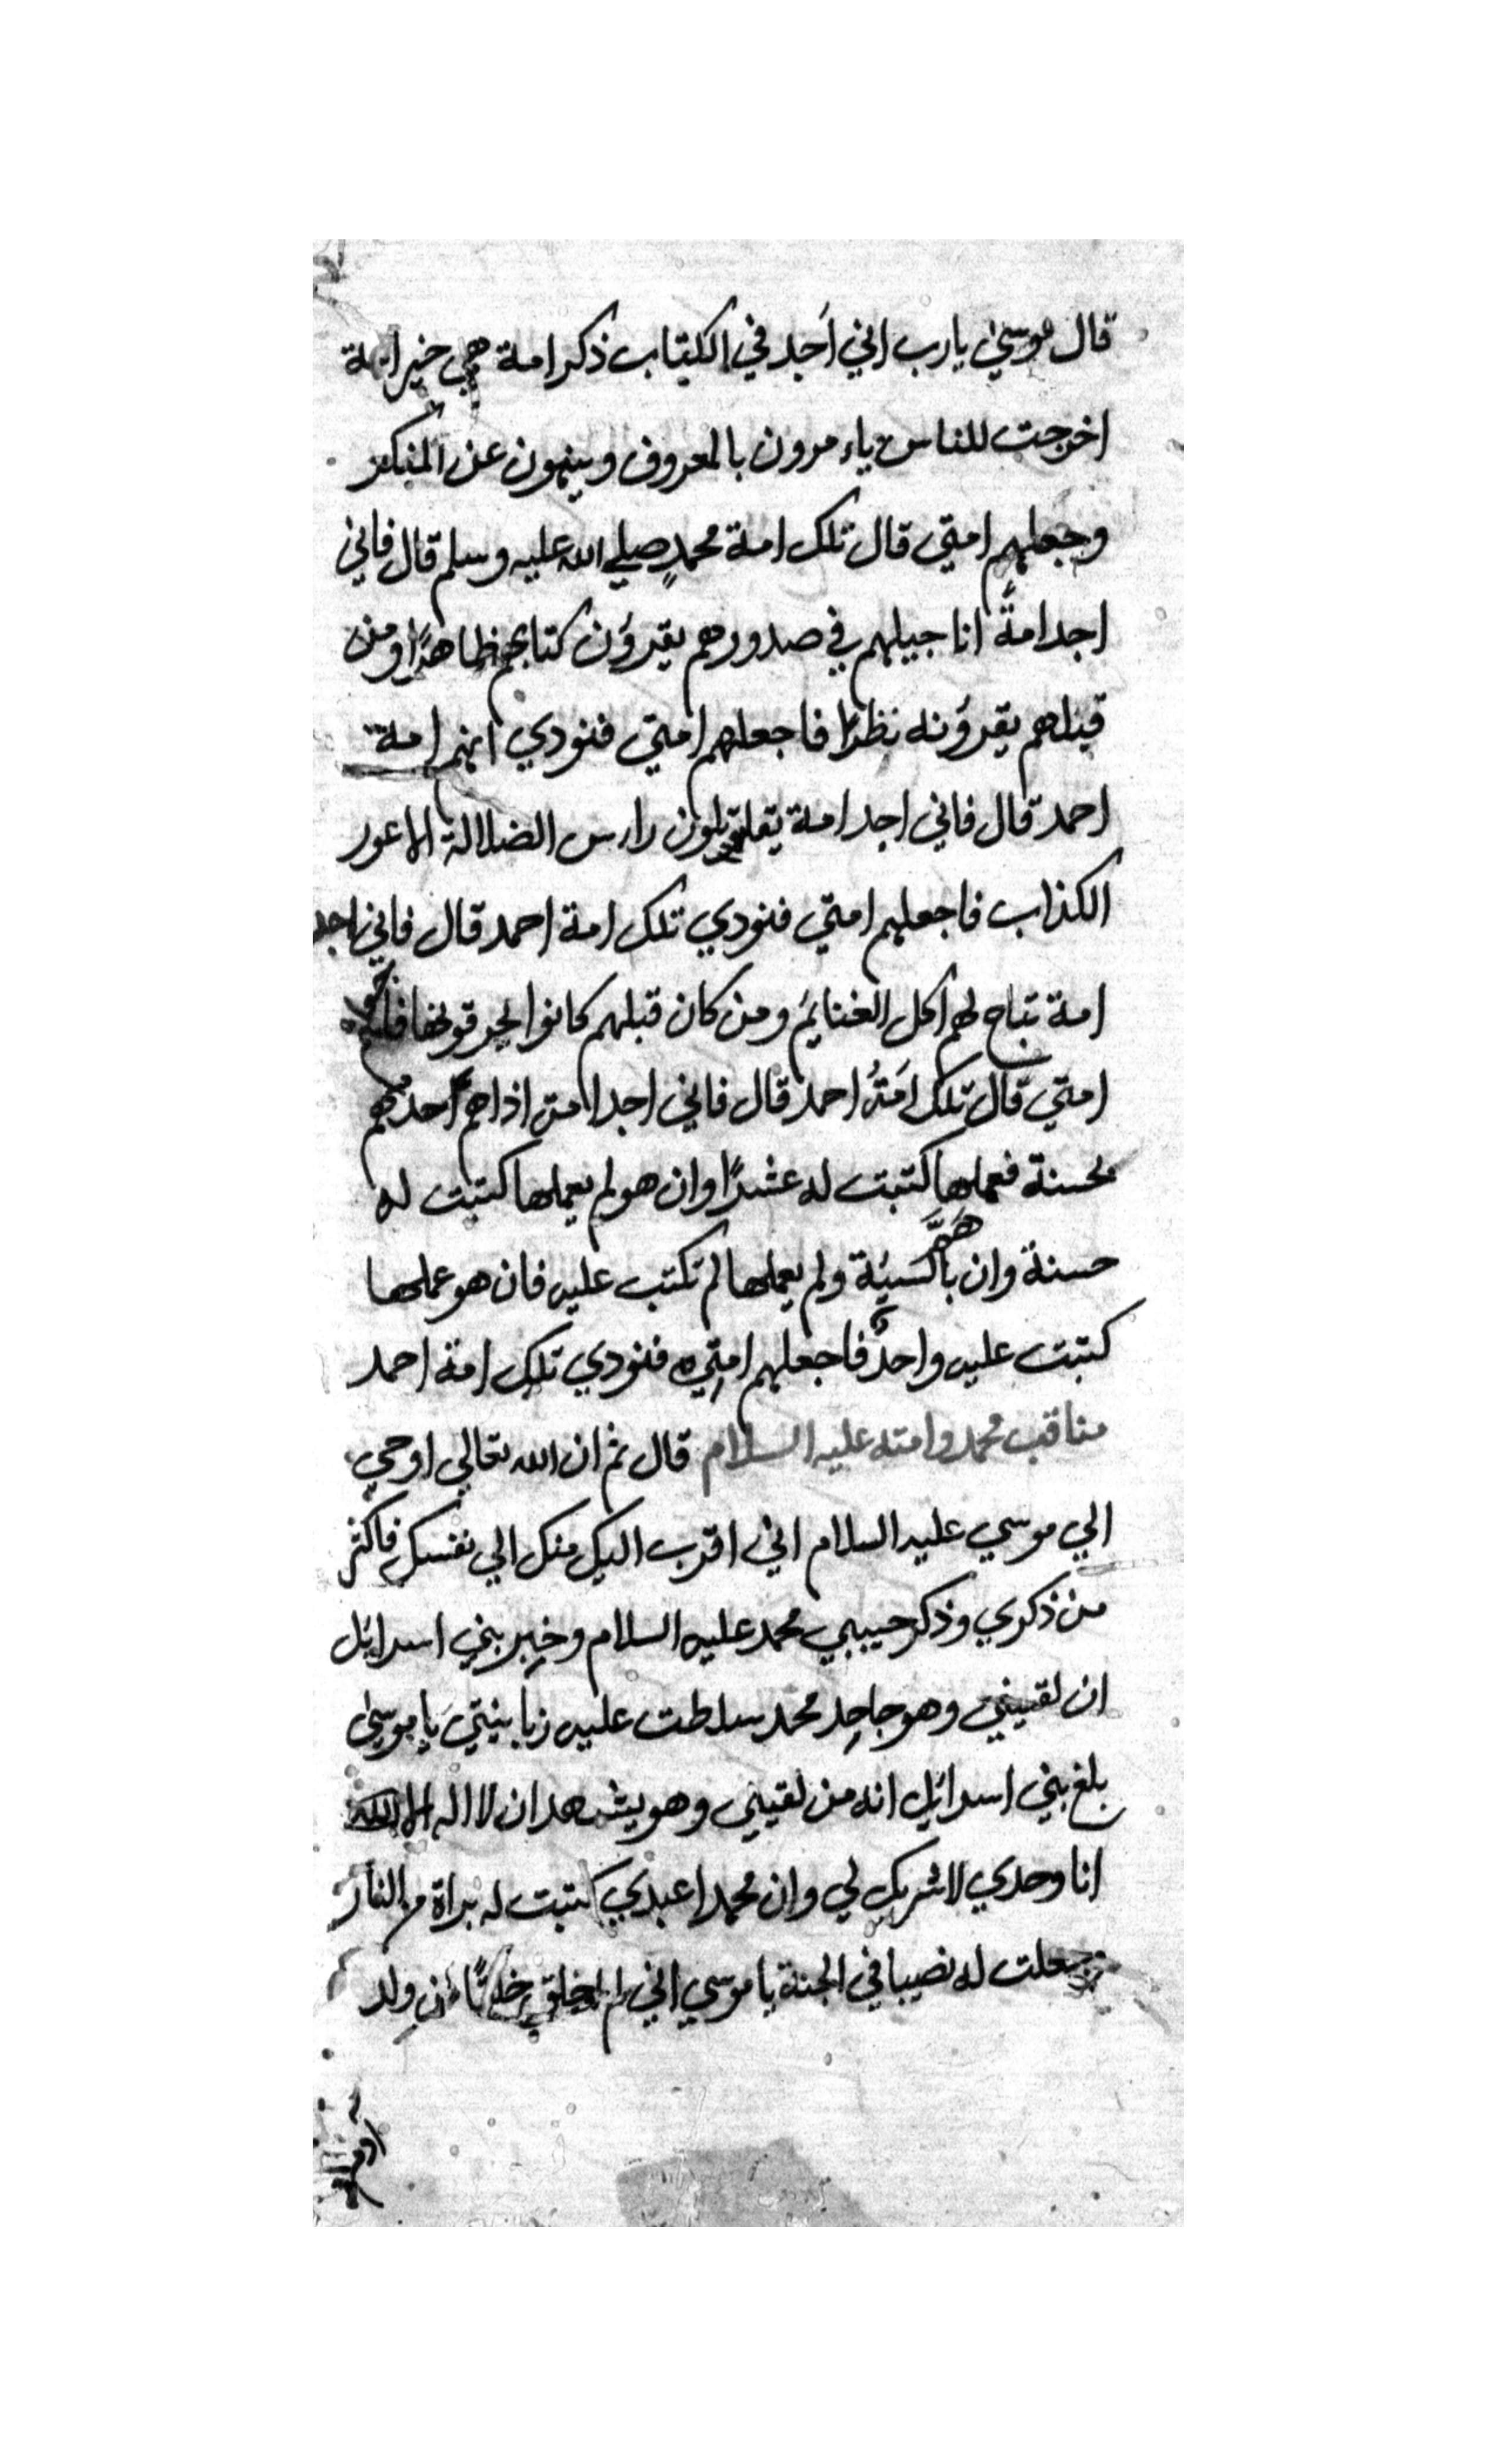 قال موسي يا رب اني اَجد في الكتاب ذكر امة هي خير امة
اخرجت للناس ياءمرون بالمعروف وينهون عن المنكر
وجعلهم امتي قال تلك امة محمدٍ صلي الله عليه وسلم قال فاني
اجد امةً اناجيلهم في صدورهم يقرؤن كتابهم ظاهرًا ومن
قبلهم يقرؤنه نظرًا فاجعلهم امتي فنودي انهم امة
احمد قال فاني اجد امة راس الضلالة الاعور
الكذاب فاجعلهم امتي فنودي تلك امة احمد قال فاني اجد
امة تباح لهم اكل الغنايمَ ومن كان قبلهم كانوا يحرقونها
امتي قال تلك اَمَةُ احمد قال فاني اجد امة اذا هم اَحدُهم
بحسنة فعملها كتبت له عشرًا وان هو لم يعملها كتبت له
حسنة وان هَمَّ بالسيئة ولم يعملها لم تكتب عليه فان هو عملها
كتبت عليه واحدة فاجعلهم امتي فنودي تلك امة احمد
مناقب محمد وامته عليه السلام قال ثم ان الله تعالي اوحي
الي موسي عليه السلام اني اقرب اليك منك الي نفسك فاكثر
من ذكري وذكر حبيبي محمد عليه السلام وخبر بني اسرائل
ان لقيني وهو جاحِد محمد سلطت عليه زبانيتي يا موسي
بلغ بني اسرائل انه من لقيني وهو يشهد ان لا اله الا
انا وحدي لا شريك لي وان محمدا عبدي كتبت له براة من النار
وجعلت له نصيبا في الجنة يا موسي اني لم اخلق خلقًا من ولد
ادم